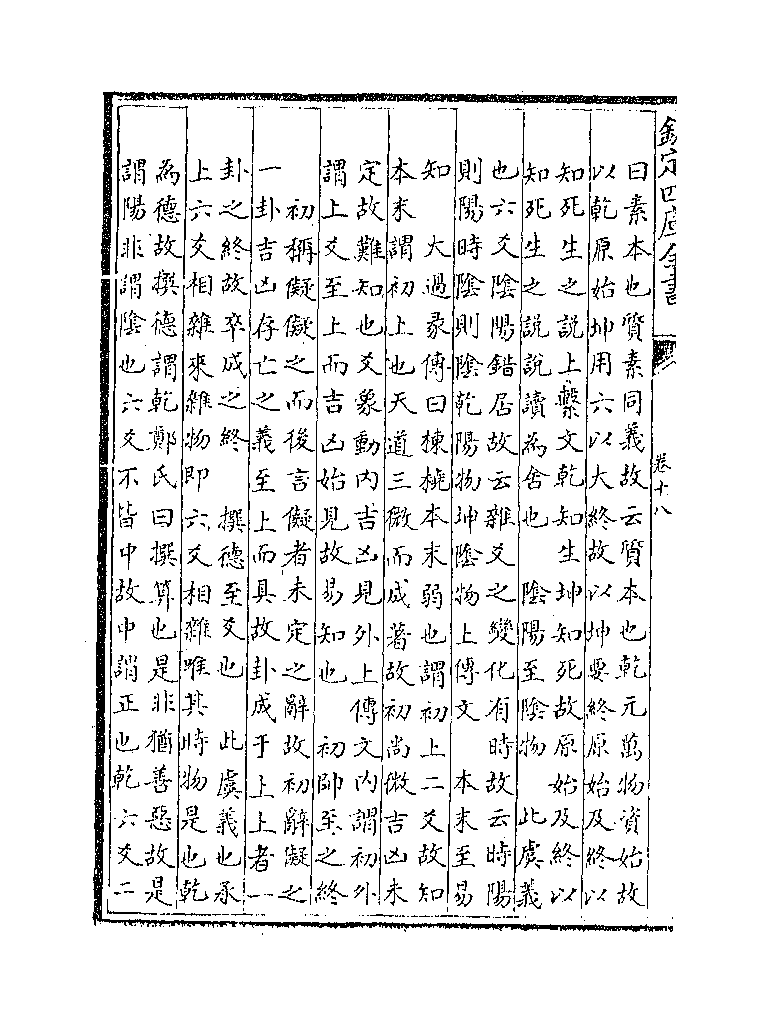 欽定四庫全書
卷十八
曰素本也質素同義故云質本也乾元萬物資始故
以乾原始坤用六以大終故以坤要終原始及終以
知死生之説上繫文乾知生坤知死故原始及終以
知死生之説説讀為舍也　陰陽至陰物　此虞義
也六爻陰陽錯居故云雜爻之變化有時故云時陽
則陽時陰則陰乾陽物坤陰物上傳文　本末至易
知　大過彖傳曰棟橈本末弱也謂初上二爻故知
本末謂初上也天道三微而成著故初尚微吉凶未
定故難知也爻象動内吉凶見外上傳文内謂初外
謂上爻至上而吉凶始見故易知也　初帥至之終
初稱儗儗之而後言儗者未定之辭故初辭儗之
一卦吉凶存亡之義至上而具故卦成于上上者一
卦之終故卒成之終　撰德至爻也　此虞義也承
上六爻相雜來雜物即六爻相雜唯其時物是也乾
為德故撰德謂乾鄭氏曰撰算也是非猶善惡故是
謂陽非謂陰也六爻不皆中故中謂正也乾六爻二